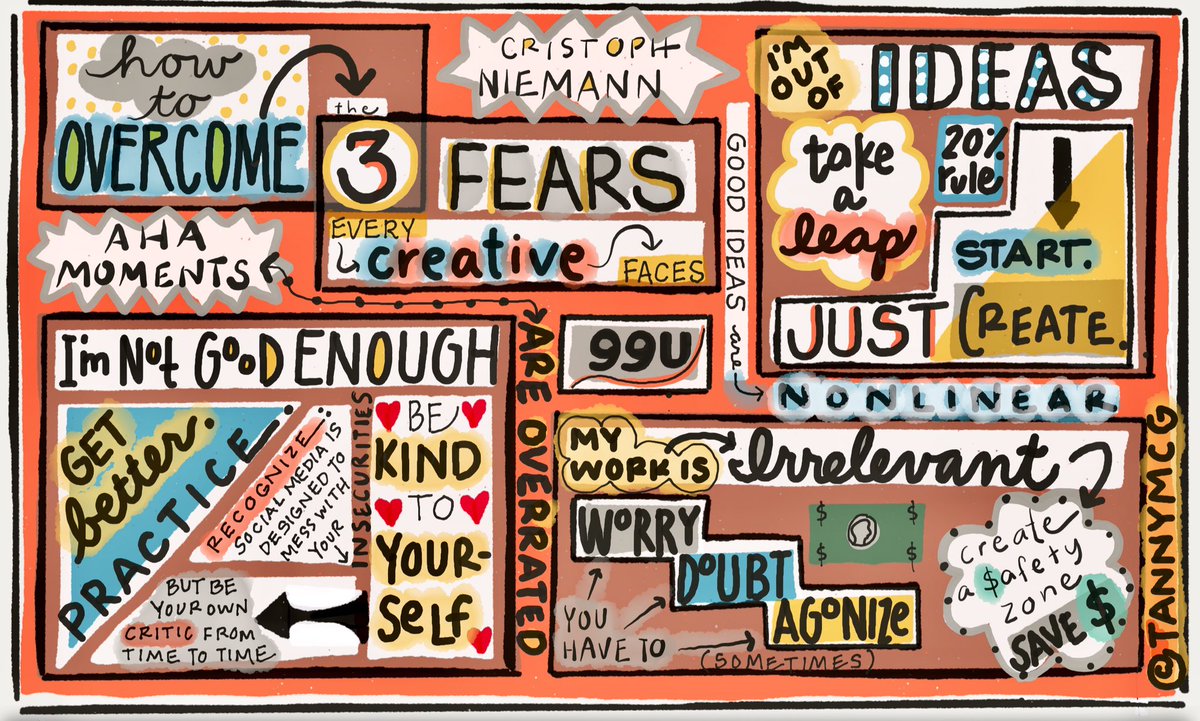 how
to
OVERCOME
the
3 FEARS
EVERY
creative
FACES
CRISTOPH
NIEMANN
I'M
OUT
OF
IDEAS
take
a
leap
20%
rule
START.
JUST CREATE.
GOOD IDEAS are
NONLINEAR
AHA
MOMENTS
ARE OVERRATED
99U
I'm Not GooD ENOUGH
GET
better.
PRACTICE
RECOGNIZE
SOCIAL MEDIA IS
DESIGNED TO
MESS WITH
YOUR
INSECURITIES
BE
KIND
TO
YOUR-
SELF
BUT BE
YOUR OWN
CRITIC FROM
TIME TO TIME
MY
WORK IS
Irrelevant
WORRY
DOUBT
AGONIZE
YOU
HAVE TO
(SOMETIMES)
$ $
$ $
create
a $afety
zone
SAVE $
@TANNYMCG